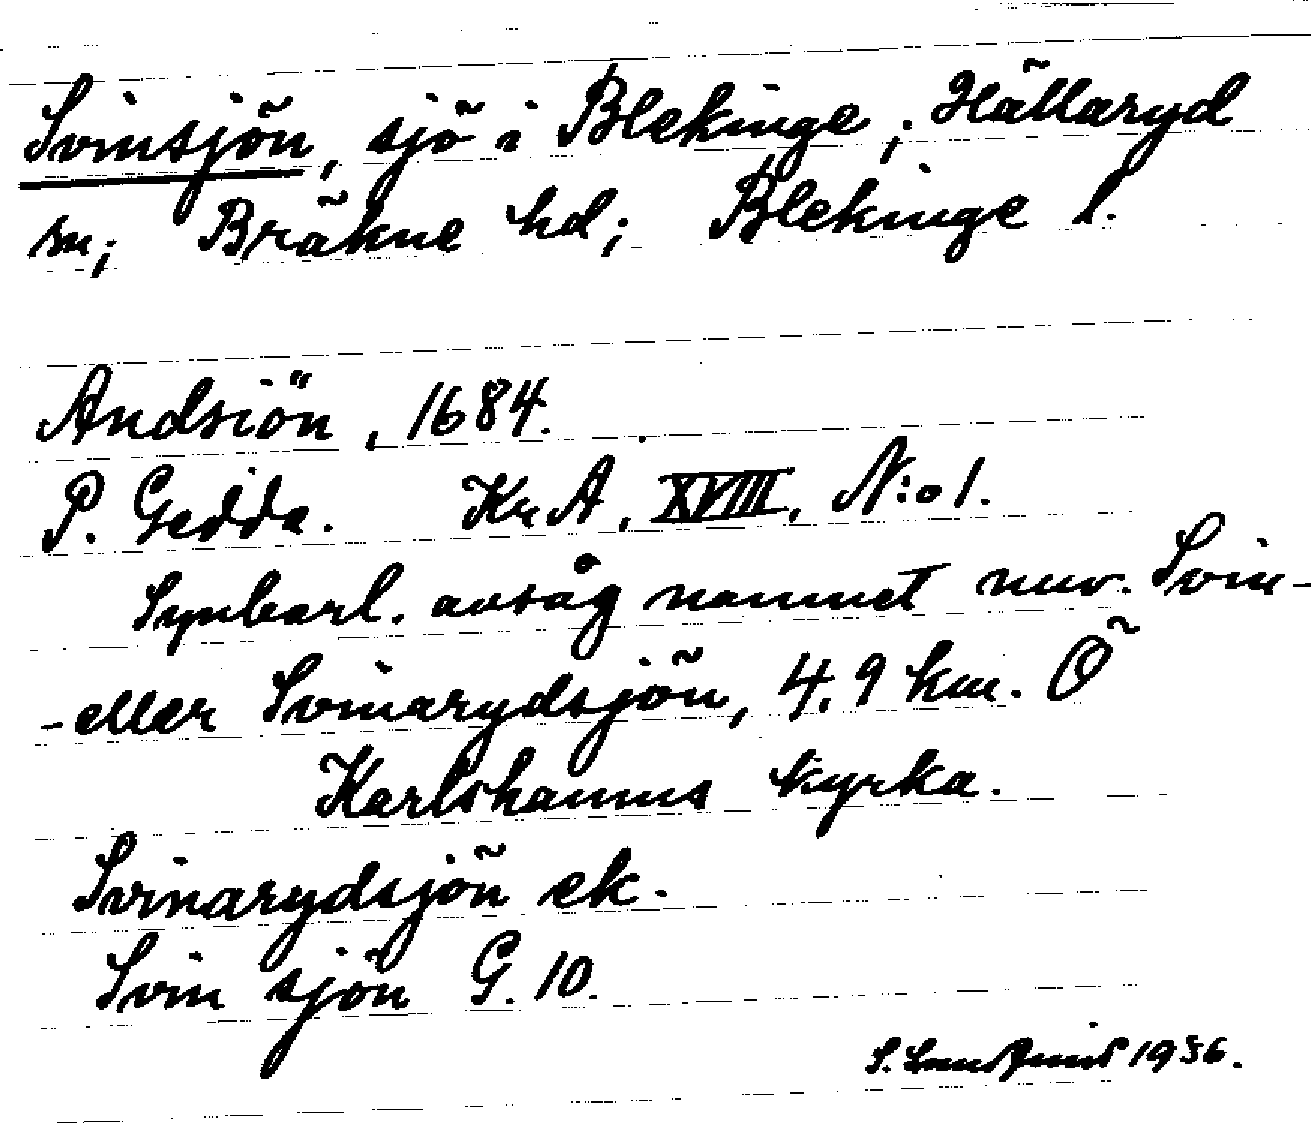 Svinsjön, sjö i Blekinge; Hällaryd
sn; Bräkne hd; Blekinge l.
Andsiön, 1684.
P. Gedda. KrA, XVIII, N:o 1.
Synbarl. avsåg namnet nuv. Svin-
-eller Svinarydsjön, 4,9 km. Ö
Karlshamns kyrka.
Svinarydsjön ek.
Svin sjön G. 10.
S. 1936.